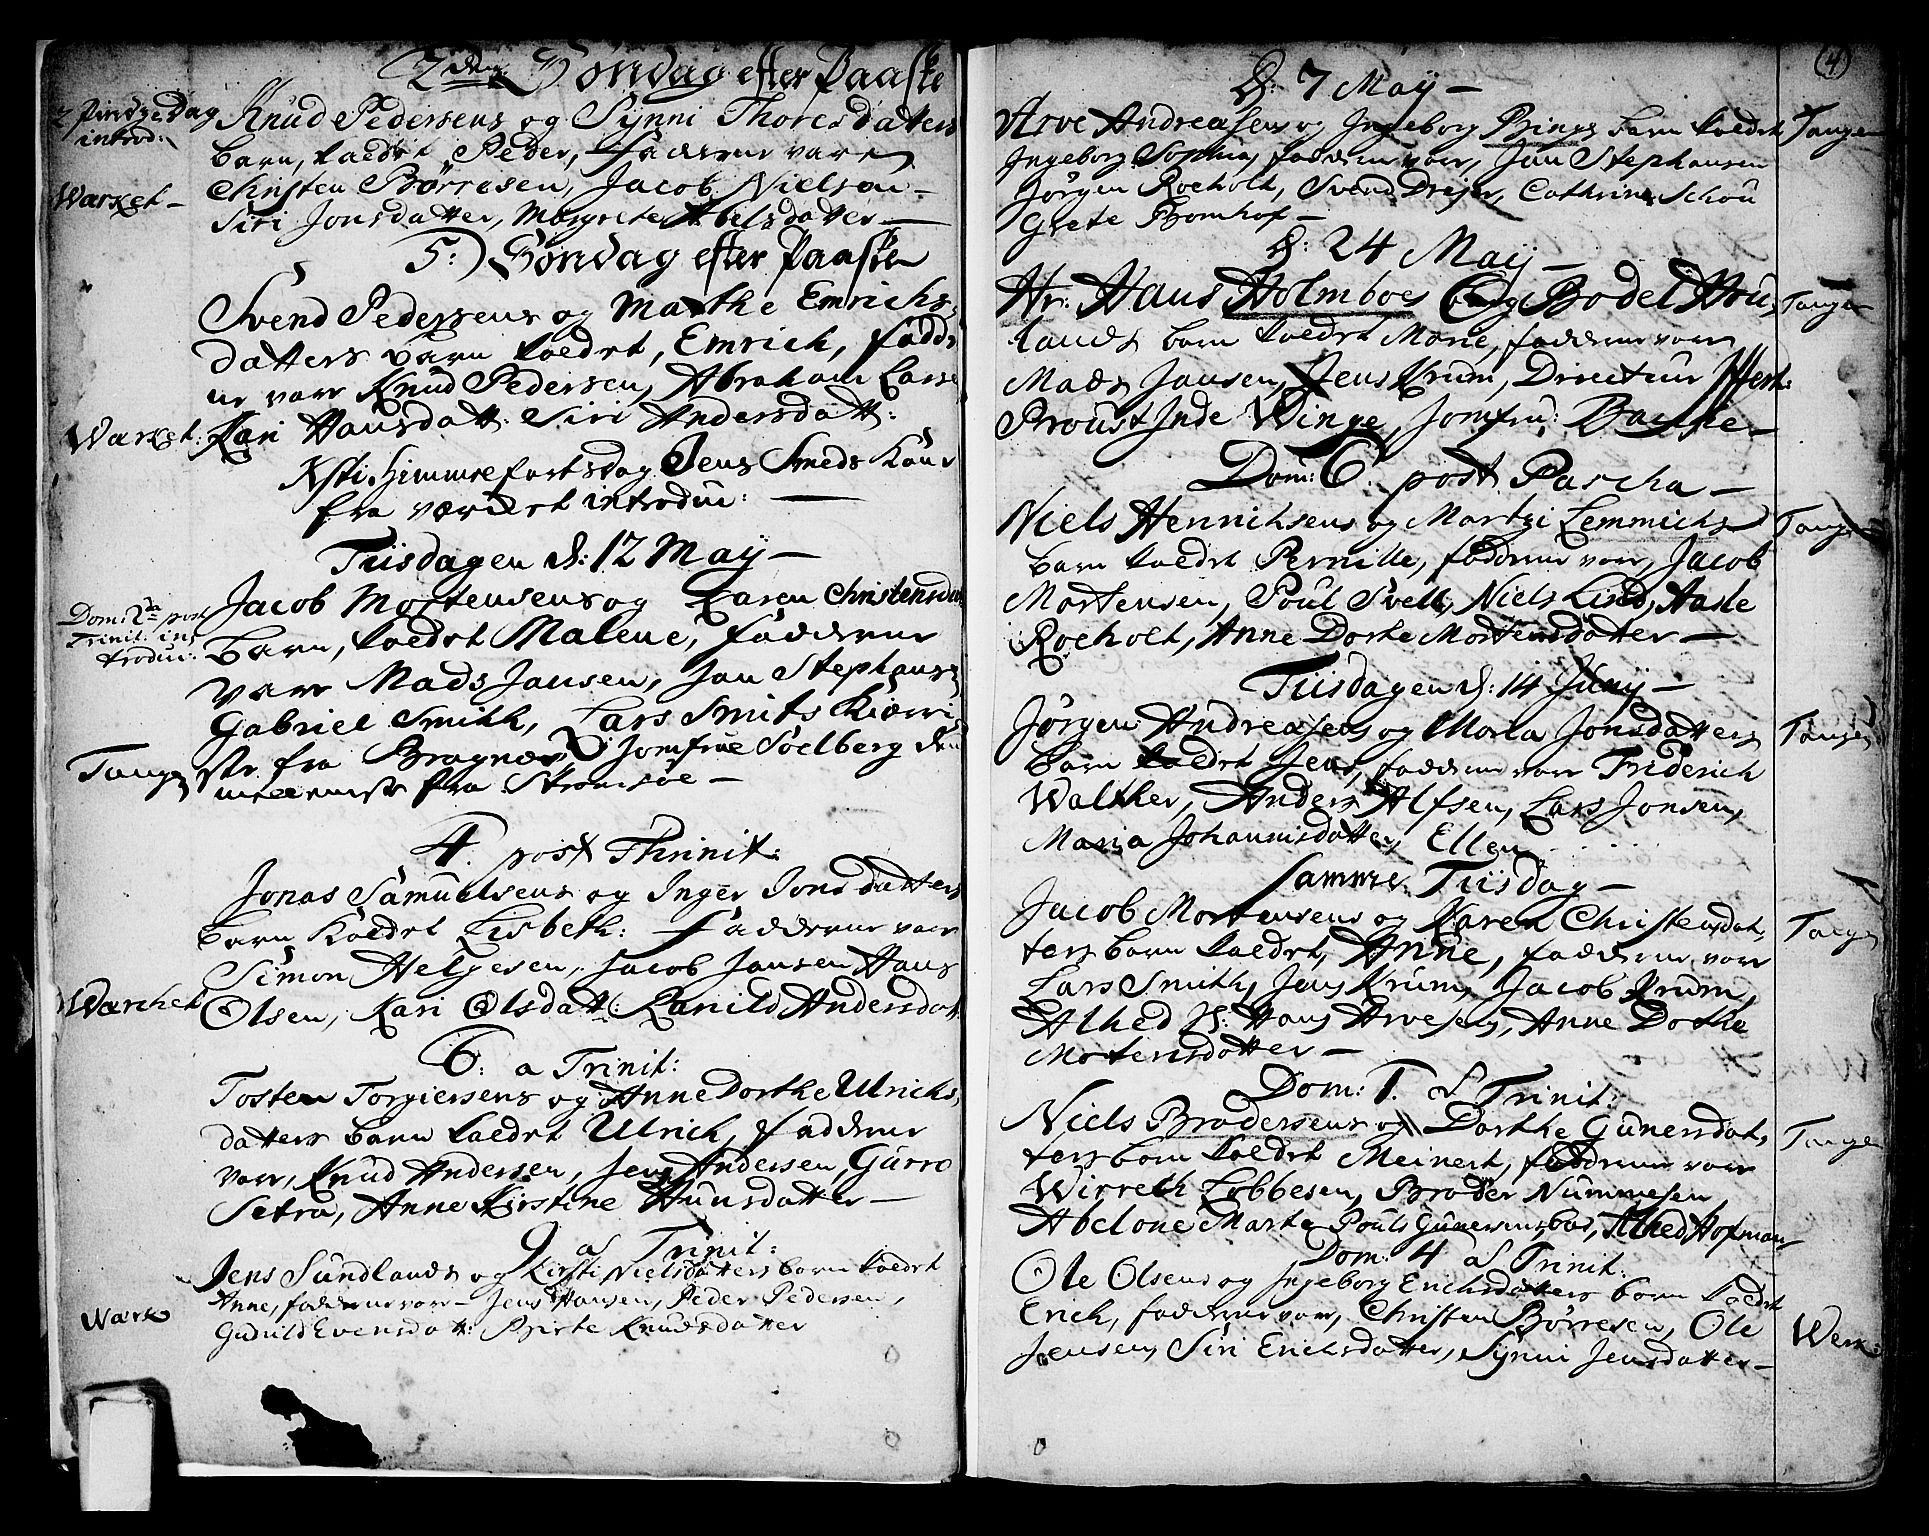 2den Søndag efter Paaske
2 Pindse Dag
introd:
Knud Pedersens og Synni Thoresdatters
barn, kaldet Peder, Faddere vare
Wærket –
Christen Børresen, Jacob Nielsen –
Siri Jonsdatter, Margrete Abelsdatter –
5: Søndag efter Paaske
Svend Pedersens og Marthe Emrichs
datters barn kaldet, Emrich, Fadde
re vare Knud Pedersen, Abraham Larse
Wærket: Kari Hansdatt: Siri Andersdatt:
Xsti Himmelfartsdag Jens Smeds Kone
fra værket introduc:
Tiisdagen d: 12 May –
Jacob Mortensens og Karen Christensdat
Dom: 2da post
Trinit: in
troduc:
barn, kaldet Malene, Faddere
vare Mads Jansen, Jan Stephansen
Gabriel Smith, Lars Smits
fra Bragnæs, Jomfrue Soelberg
Tangen
fra Strømsøe –
4. post Thrinit:
Jonas Samuelsens og Inger Jonsdatters
barn kaldet Lisbeth: Faddere vare
Simon Helgesen, Jacob Jansen Hans
Warchet
Olsen, Kari Olsdatt: Ranild Andersdat
6: a Trinit:
Tosten Torgiersens og Anne Dorthe Ulrichs
datters barn kaldet Ulrich, Faddere
vare, Knud Andersen, Jens Andersen, Gurro
Setra, Anne Kirstine Hansdatter –
9 a Trinit:
Jens Sundlands og Kirsti Nielsdatters barn kaldet
Anne, faddere vare – Jens Hansen, Peder Pedersen,
Wærk
Gunild Evensdatt: Birte Knudsdatter
4
d: 7 May –
Arve Andreasens og Ingeborg Bings barn kaldet
Tangen
Ingeborg Sophia, faddere var, Jan Stephansen
Jørgen Roeholt, Svend Drejer, Cathrine Schou
Grete Bromhof –
d: 24 May –
Hr: Hans Holmboes og Bodel Hou
Tangen
lands barn kaldet Marie, faddere var
Mads Jansen, Jens Krum, Directeur
Proust Inde Winge, Jomfru: Basse –
Dom: 6. post Pascha –
Niels Henrichsens og Martzi Lemmichs
Tangen
barn kaldet Pernille, faddere var, Jacob
Mortensen, Poul Svelt, Niels Lind, Aasle
Roeholt, Anne Dorthe Mortensdatter –
Tiisdagen d: 14 Juny –
Jørgen Andreasens og Maria Jonsdatters
Tangen
barn kaldet Jens, faddere var Friderich
Walther, Anders Alfsen, Lars Jonsen,
Maria Johannisdatter, Ellen
Samme Tiisdag –
Jacob Mortensens og Karen Christensdat,
Tangen
ters barn kaldet, Anne, faddere var
Lars Smith, Jens Krum, Jacob Krum,
Alhed Sl: Hans Arvesens, Anne Dorthe
Mortensdatter –
Dom: 1. a Trinit:
Niels Brodersens og Dorthe Gunersdat,
Tangen
ters barn kaldet Meinert, faddere var
Wirreth Lobbesen, Broder Nummesen,
Abelone Marte Pouls Gunersens, Alhed Hofman
Dom: 4 a Trinit:
Ole Olsens og Ingeborg Erichsdatters barn kaldet
Erich, faddere var, Christen Børresen, Ole
Werk:
Jensen, Siri Erichsdatter, Synni Jensdatter –